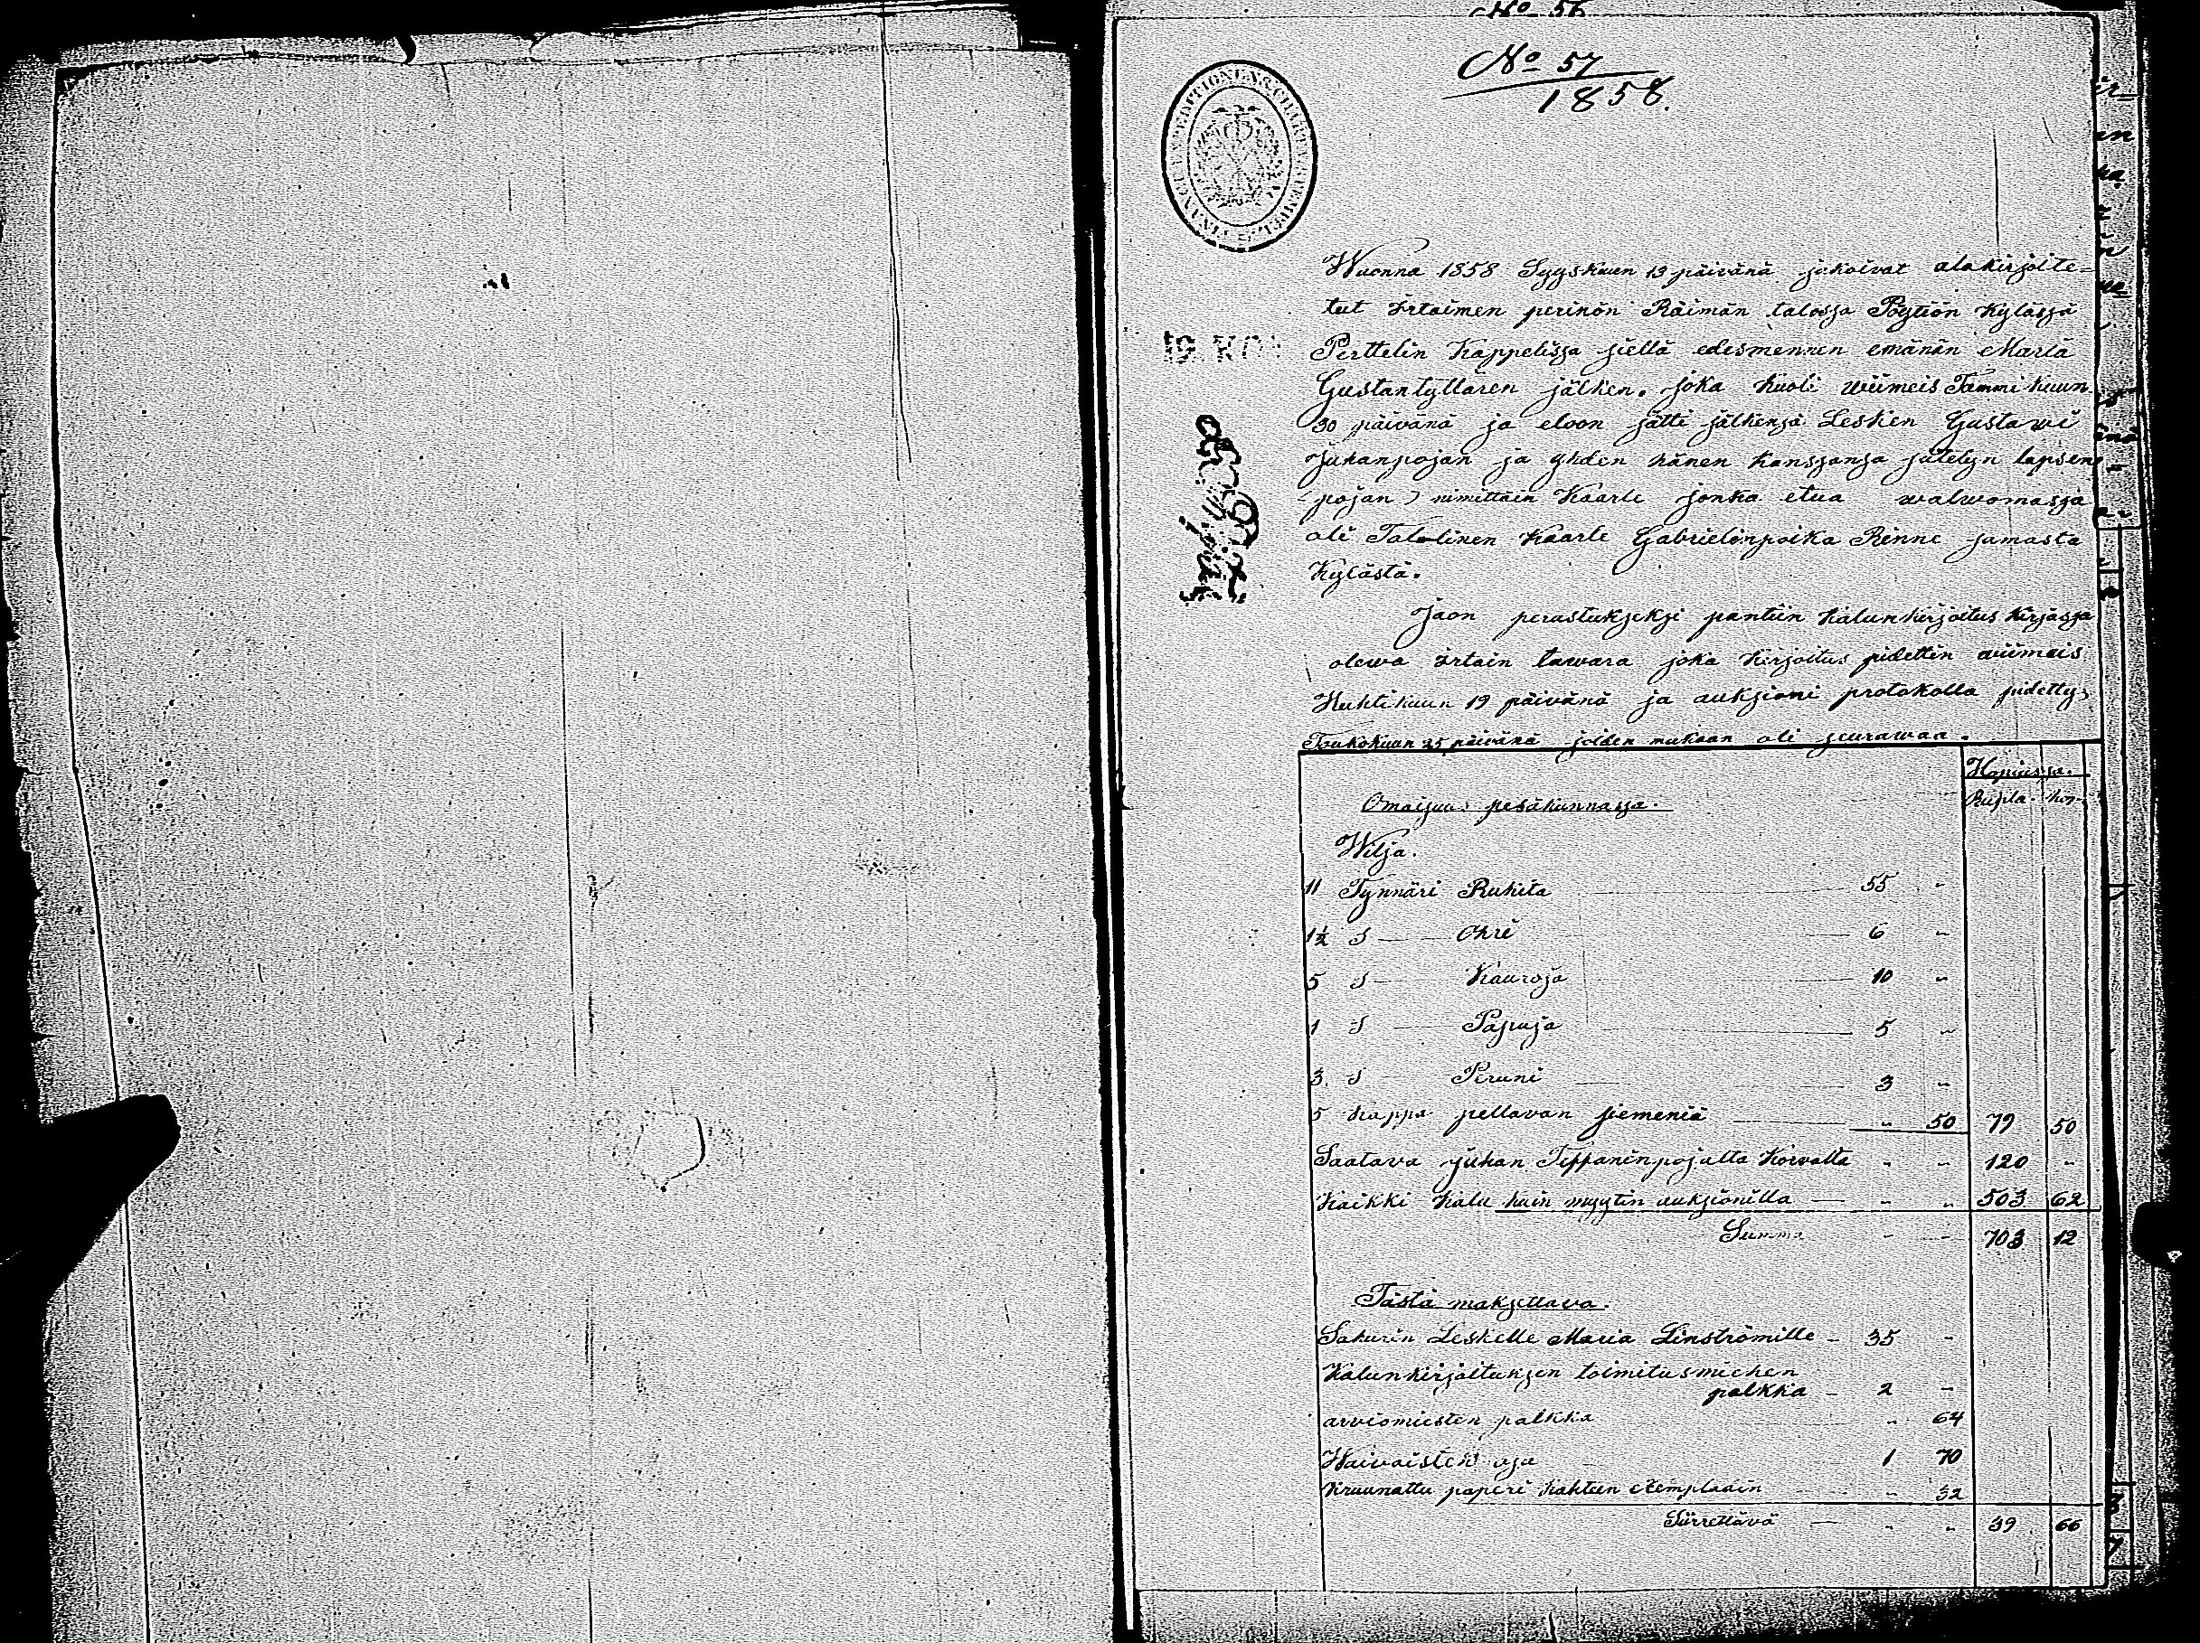 No 56
No 57
1858.
Wuonna 1858 Syyskuun 13 päivänä jakoivat alakirjoite-
tut irtaimen perinön Räimän talossa Pöytiön Kylässä
Perttelin Kappelissa siellä edesmennen emänän Maria
Gustantyttären jälken. joka Kuoli wiimeis Tammikuun
30 päivänä ja eloon jätti jälkensä Lesken Gustawi
Juhanpojan ja yhden hänen kanssansa jätetyn lapsen
(pojan) nimittäin Kaarle jonka etua walwomassa
oli Talolinen Kaarle Gabrielinpoika Rinne samasta
Kylästä.
Jaon perustukseksi pantiin Kalunkirjoitus Kirjassa
olewa irtain tawara joka Kirjoitus pidettin wiimeis
Huhtikuun 19 päivänä ja auksioni protokolla pidetty
Toukokuun 25 päivänä joiden mukaan oli seurawaa.
Hopiassa.
Omaisuus pesäkunnassa. Rupla. Kop.
Wilja.
11 Tynnäri Rukita 55 "
1½ S Ohri 6 "
5 S Kauroja 10 "
1 S Papuja 5 "
3. S Peruni 3 "
5 Kappa pellavan siemeniä " 50 79 50
Saatava Juhan Teppaninpojalta Korvalta " " 120 "
Kaikki Kalu kuin myytin auksionilla " " 503 62
Summa " " 703 12
Tästä maksettava.
Sakurin Leskelle Maria Linströmille 35 "
Kalunkirjoituksen toimitusmiehen
palkka 2 "
arviomiesten palkka " 64
Waivaisten osa 1 70
Kruunattu paperi Kahteen exemplaarin " 32
Siirrettävä " " 39 66